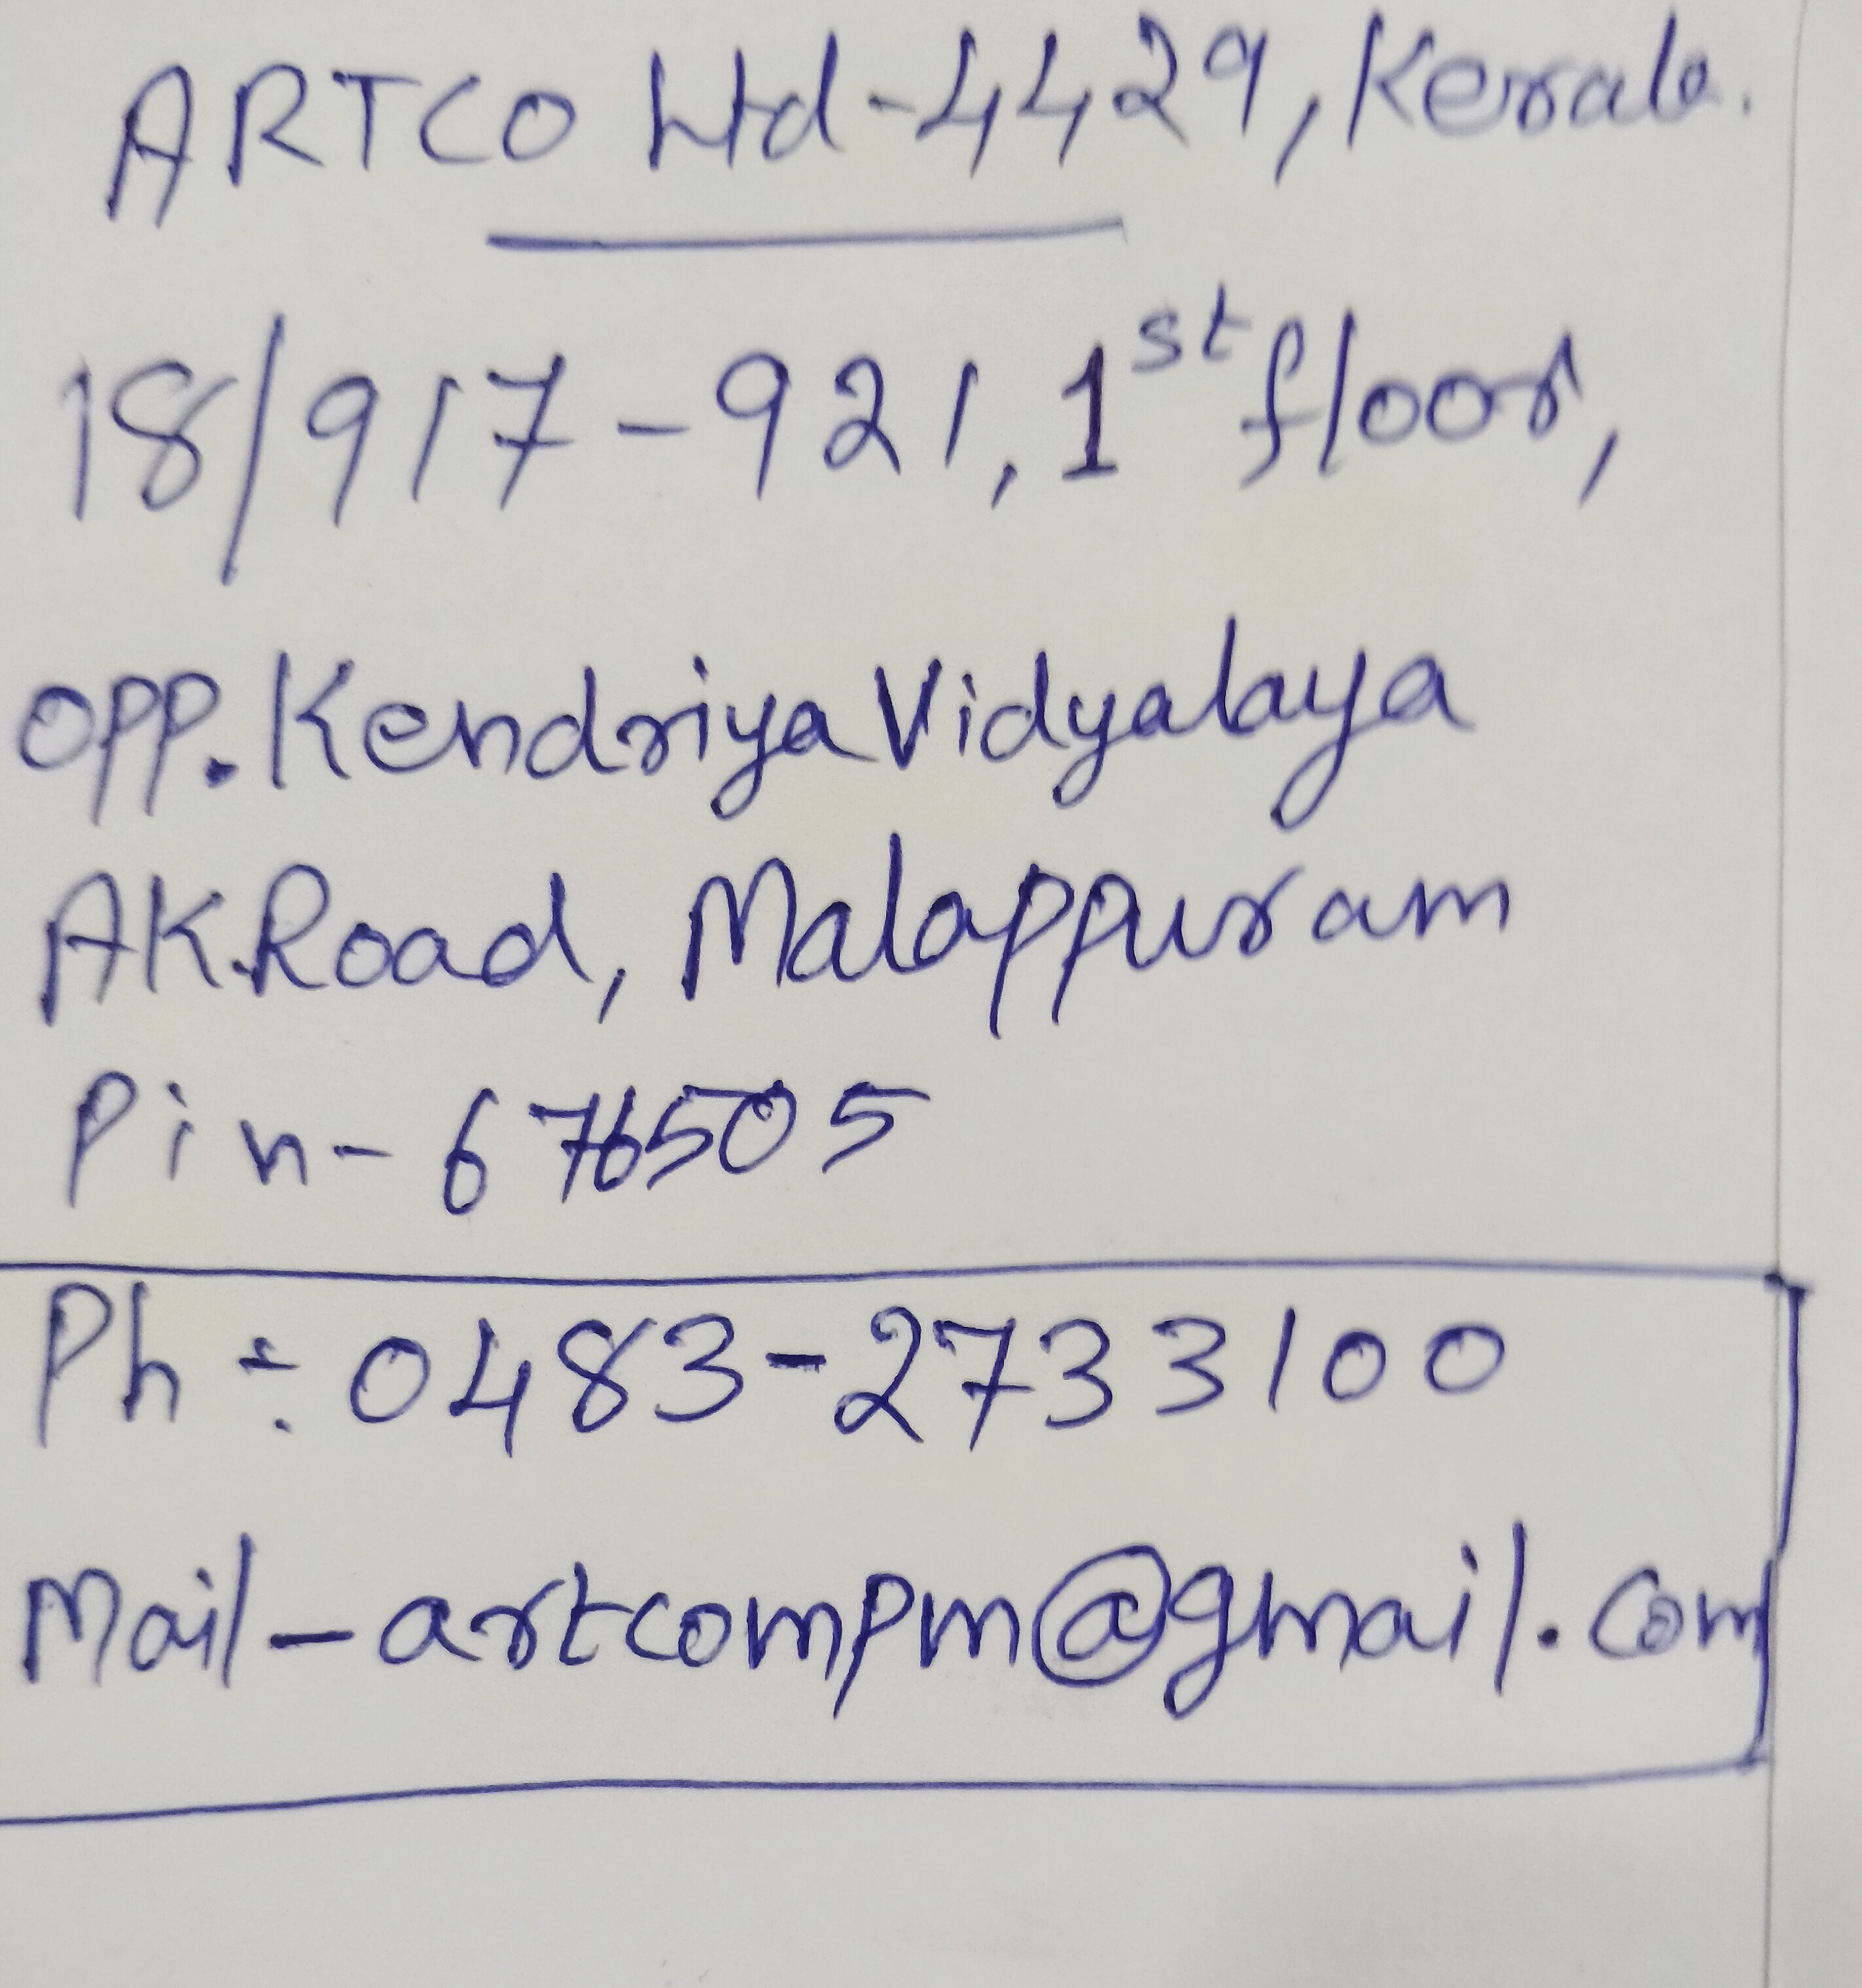 ARTCO Ltd-4429, Kerala.
18/917-921, 1st floor,
OPP. Kendriya Vidyalaya
AK.Road, Malappuram
Pin-676505
Ph÷0483-2733100
Mail-artcompm@gmail.com